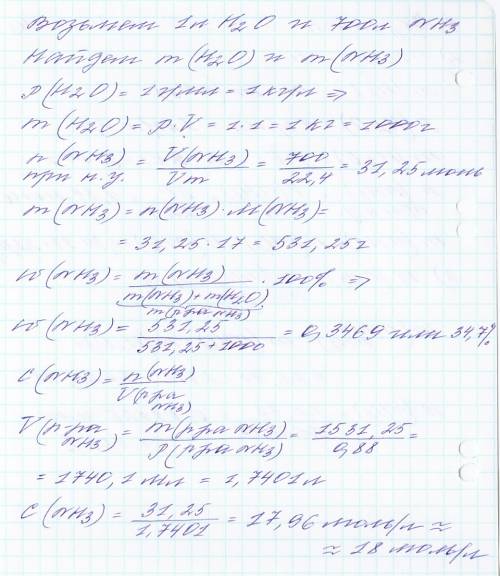 Возьмем 1л H2O и 700л NH3
Найдем m(H2O) и m(NH3)
ρ(H2O) = 1г/мл = 1кг/л ⇒
m(H2O) = ρ·V = 1·1 = 1кг = 1000г
n(NH3) при н.у. = V(NH3)/Vm = 700/22,4 = 31,25 моль
m(NH3) = n(NH3)·M(NH3) =
= 31,25·17 = 531,25г
w(NH3) = m(NH3)/m(NH3)+m(H2O) m(р-ра NH3) · 100% ⇒
w(NH3) = 531,25/531,25+1000 = 0,3469 или 34,7%
c(NH3) = n(NH3)/V(р-ра NH3)
V(р-ра NH3) = m(р-ра NH3)/ρ(р-ра NH3) = 1531,25/0,88 =
= 1740,1 мл = 1,7401л
c(NH3) = 31,25/1,7401 = 17,96 моль/л ≈
≈ 18 моль/л